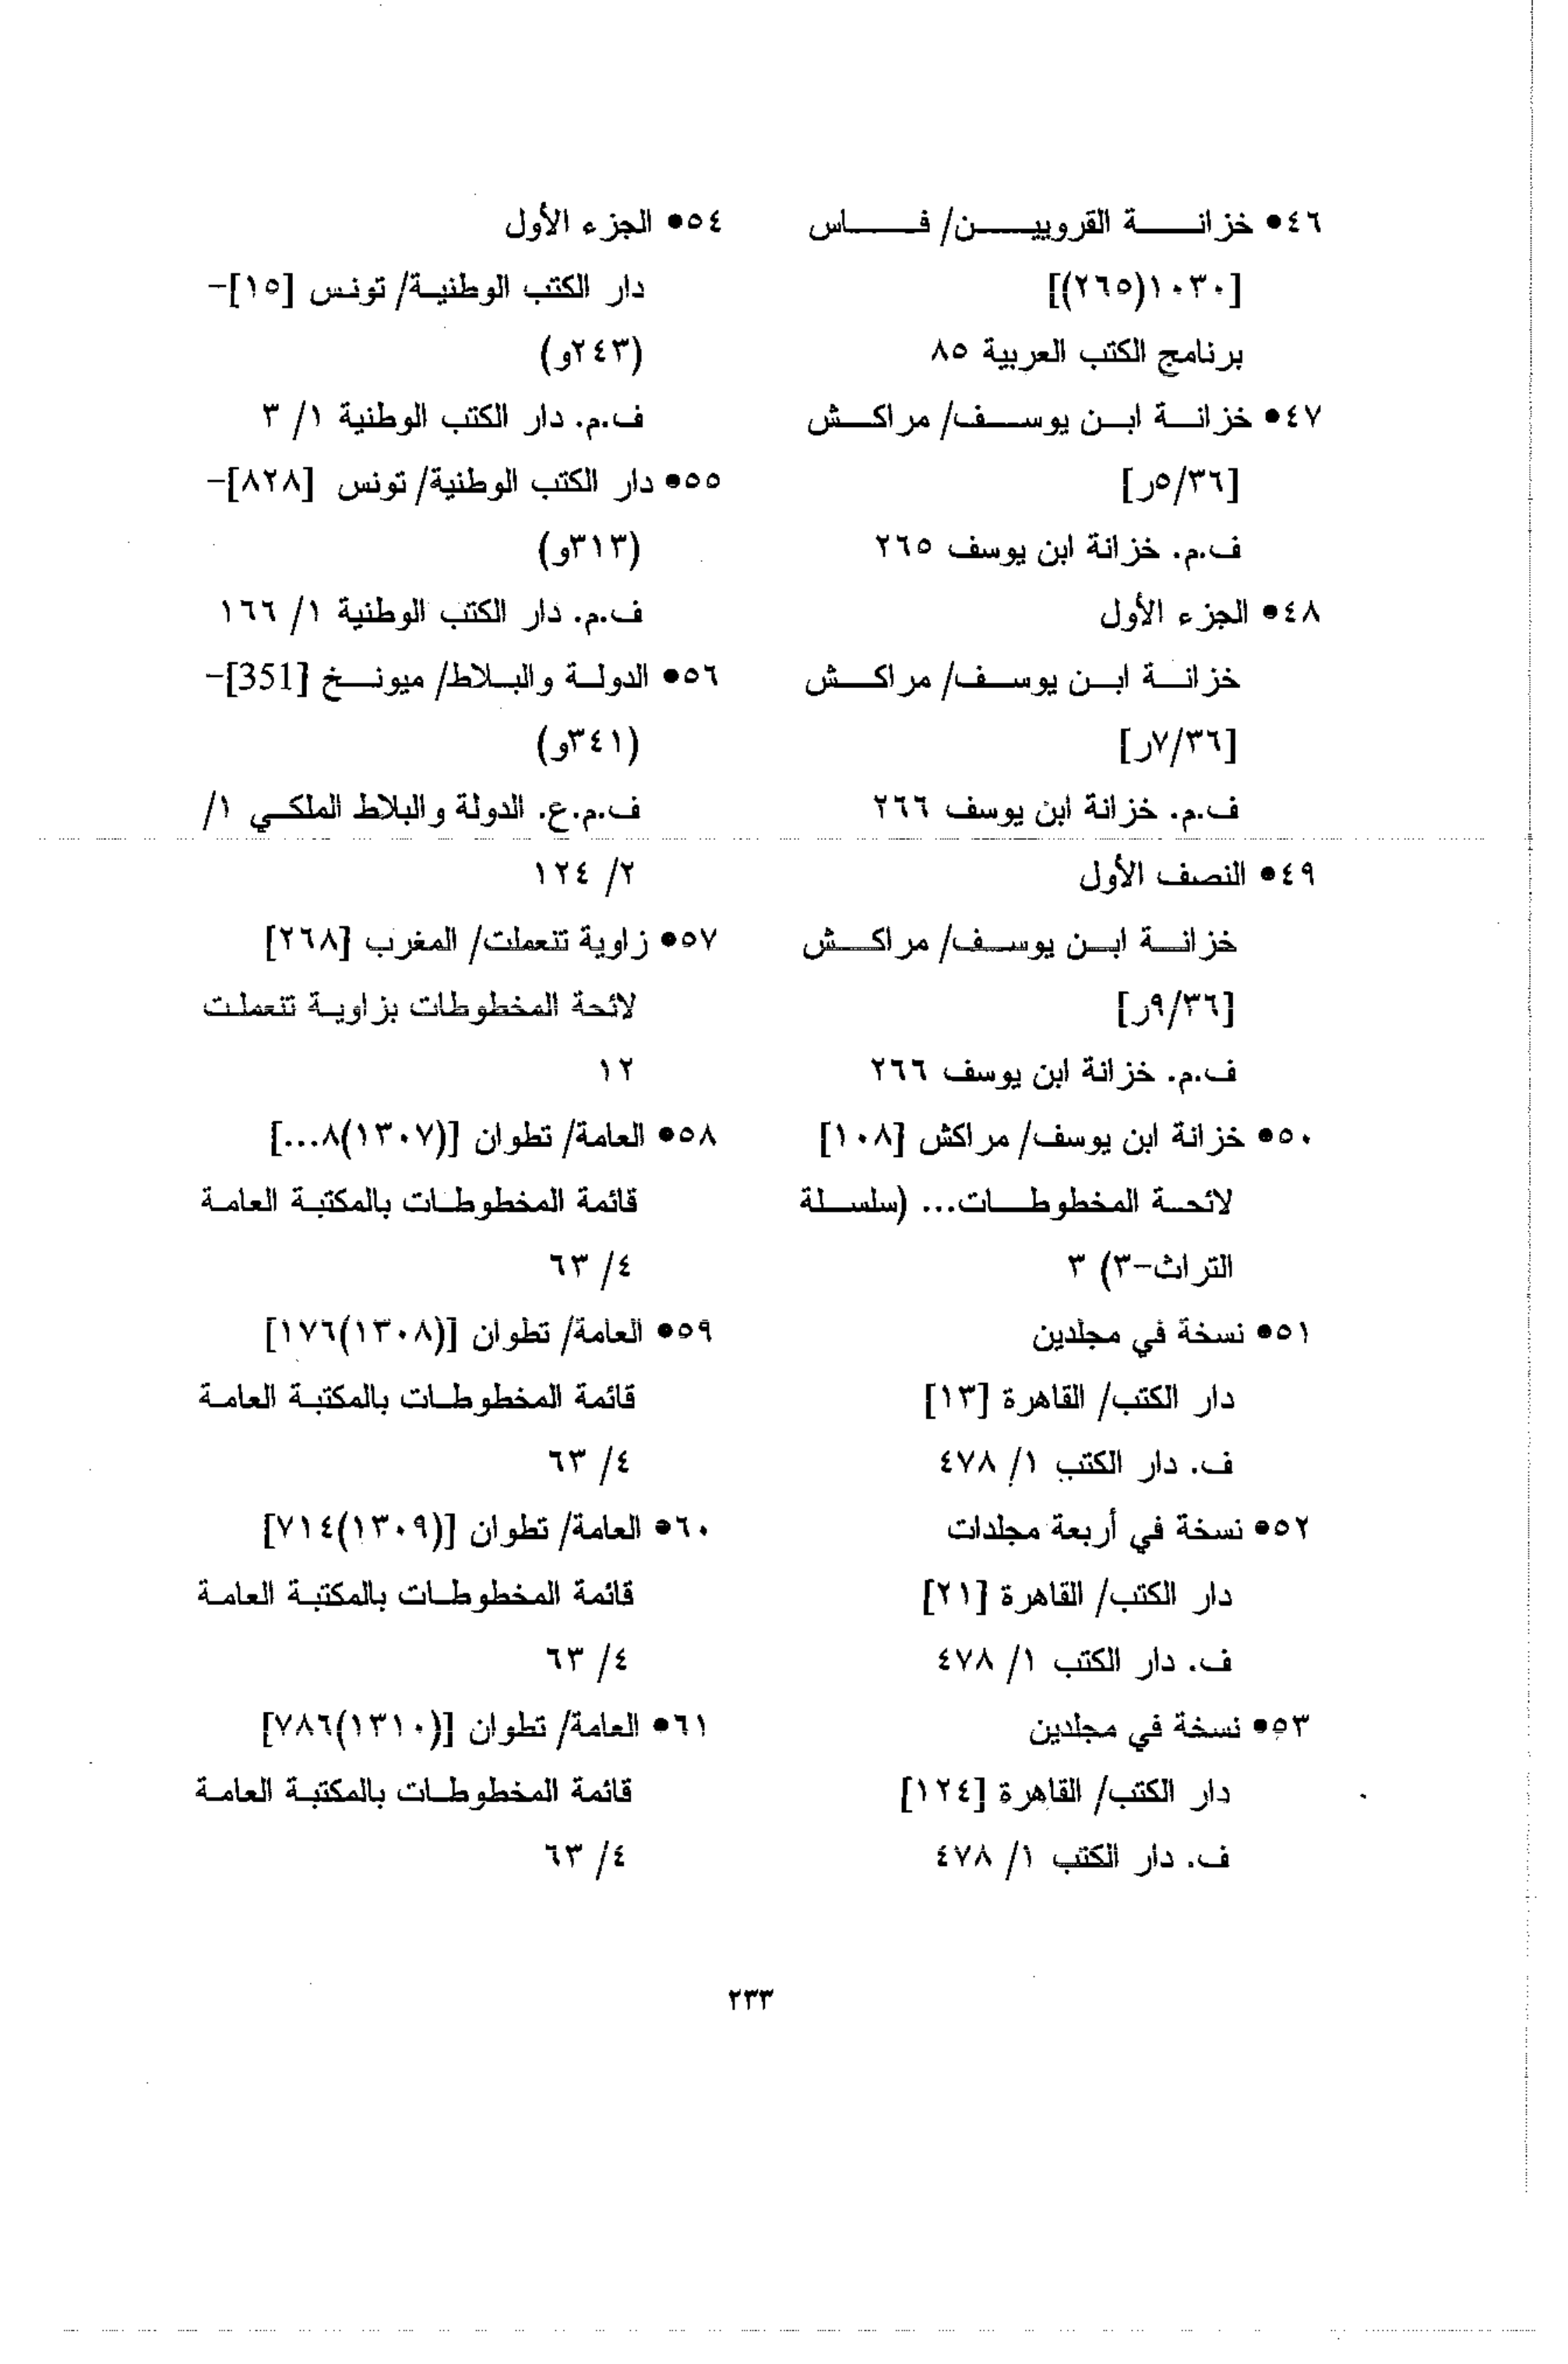 ٤٦● خزانة القرويين/ فاس
[١٠٣٠(٢٦٥)]
برنامج الكتب العربية ٨٥
٤٧● خزانة ابن يوسف/ مراكش
[٥/٣٦ر]
ف.م. خزانة ابن يوسف ٢٦٥
٤٨● الجزء الأول
خزانة ابن يوسف/ مراكش
[٧/٣٦ر]
ف.م. خزانة ابن يوسف ٢٦٦
٤٩● النصف الأول
خزانة ابن يوسف/ مراكش
[٩/٣٦ر]
ف.م. خزانة ابن يوسف ٢٦٦
٥٠● خزانة ابن يوسف/ مراكش [١٠٨]
لائحة المخطوطات... (سلسلة
التراث-٣) ٣
٥١● نسخة في مجلدين
دار الكتب/ القاهرة [١٣]
ف. دار الكتب ١/ ٤٧٨
٥٢● نسخة في أربعة مجلدات
دار الكتب/ القاهرة [٢١]
ف. دار الكتب ١/ ٤٧٨
٥٣● نسخة في مجلدين
دار الكتب/ القاهرة [١٢٤]
ف. دار الكتب ١/ ٤٧٨
٥٤● الجزء الأول
دار الكتب الوطنية/ تونس [١٥]-
(٢٤٣و)
ف.م. دار الكتب الوطنية ١/ ٣
٥٥● دار الكتب الوطنية/ تونس [٨٢٨]-
(٣١٣و)
ف.م. دار الكتب الوطنية ١/ ١٦٦
٥٦● الدولة والبلاط/ ميونخ [351]-
(٣٤١و)
ف.م.ع. الدولة والبلاط الملكي ١/
٢/ ١٢٤
٥٧● زاوية تنعملت/ المغرب [٢٦٨]
لائحة المخطوطات بزاوية تنعملت
١٢
٥٨● العامة/ تطوان [(١٣٠٧)٨...]
قائمة المخطوطات بالمكتبة العامة
٤/ ٦٣
٥٩● العامة/ تطوان [(١٣٠٨)١٧٦]
قائمة المخطوطات بالمكتبة العامة
٤/ ٦٣
٦٠● العامة/ تطوان [(١٣٠٩)٧١٤]
قائمة المخطوطات بالمكتبة العامة
٤/ ٦٣
٦١● العامة/ تطوان [(١٣١٠)٧٨٦]
قائمة المخطوطات بالمكتبة العامة
٤/ ٦٣
٢٣٣